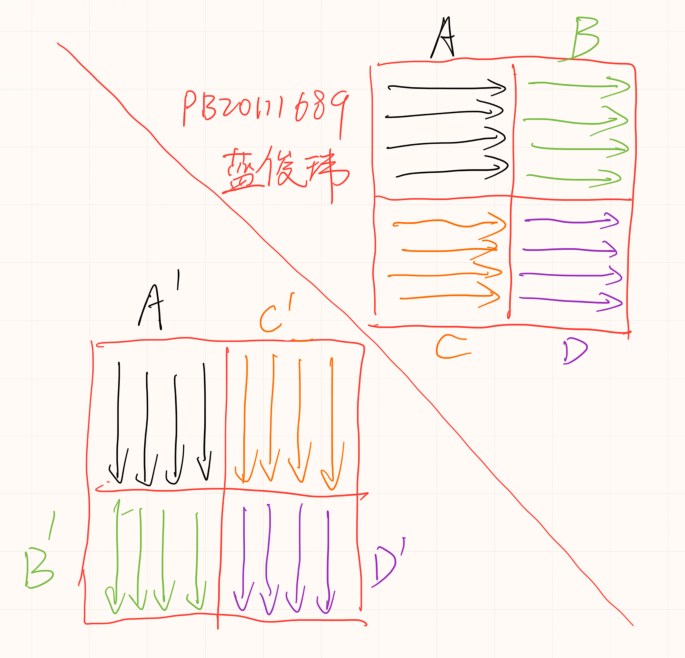 A B
PB20111689
蓝俊玮
C D
A' C'
B' D'